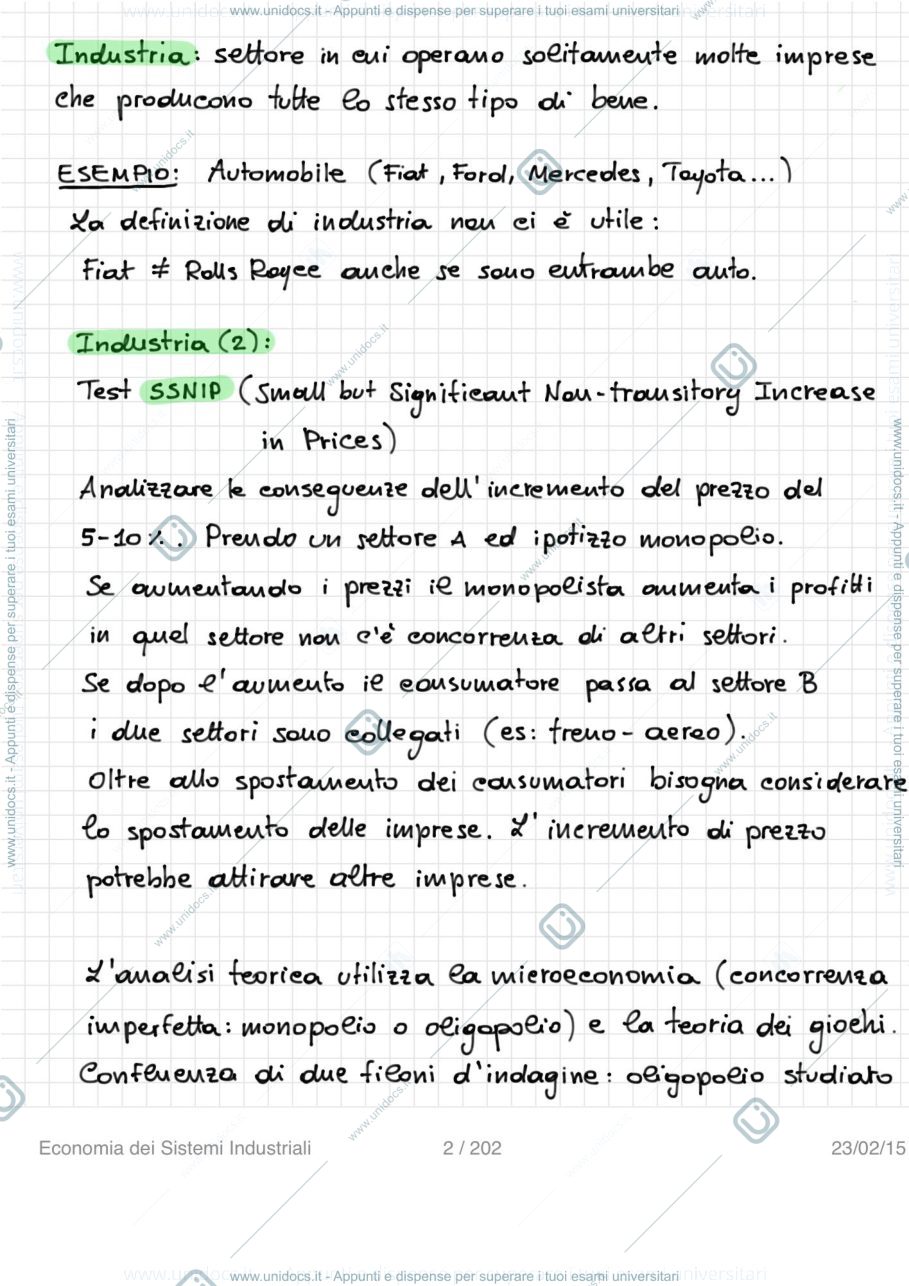 www.unidocs.it - Appunti e dispense per superare i tuoi esami universitari
Industria: settore in cui operano solitamente molte imprese
che producono tutte lo stesso tipo di bene.
ESEMPIO: Automobile (Fiat, Ford, Mercedes, Toyota...)
La definizione di industria non ci è utile:
Fiat ≠ Rolls Royce anche se sono entrambe auto.
Industria (2):
Test SSNIP (Small but Significant Non-transitory Increase
in Prices)
Analizzare le conseguenze dell'incremento del prezzo del
5-10%. Prendo un settore A ed ipotizzo monopolio.
Se aumentando i prezzi il monopolista aumenta i profitti
in quel settore non c'è concorrenza di altri settori.
Se dopo l'aumento il consumatore passa al settore B
i due settori sono collegati (es: treno - aereo).
Oltre allo spostamento dei consumatori bisogna considerare
lo spostamento delle imprese. L'incremento di prezzo
potrebbe attirare altre imprese.
L'analisi teorica utilizza la microeconomia (concorrenza
imperfetta: monopolio o oligopolio) e la teoria dei giochi.
Confluenza di due filoni d'indagine: oligopolio studiato
Economia dei Sistemi Industriali 2 / 202 23/02/15
www.unidocs.it - Appunti e dispense per superare i tuoi esami universitari
www.unidocs.it - Appunti e dispense per superare i tuoi esami universitari
www.unidocs.it - Appunti e dispense per superare i tuoi esami universitari